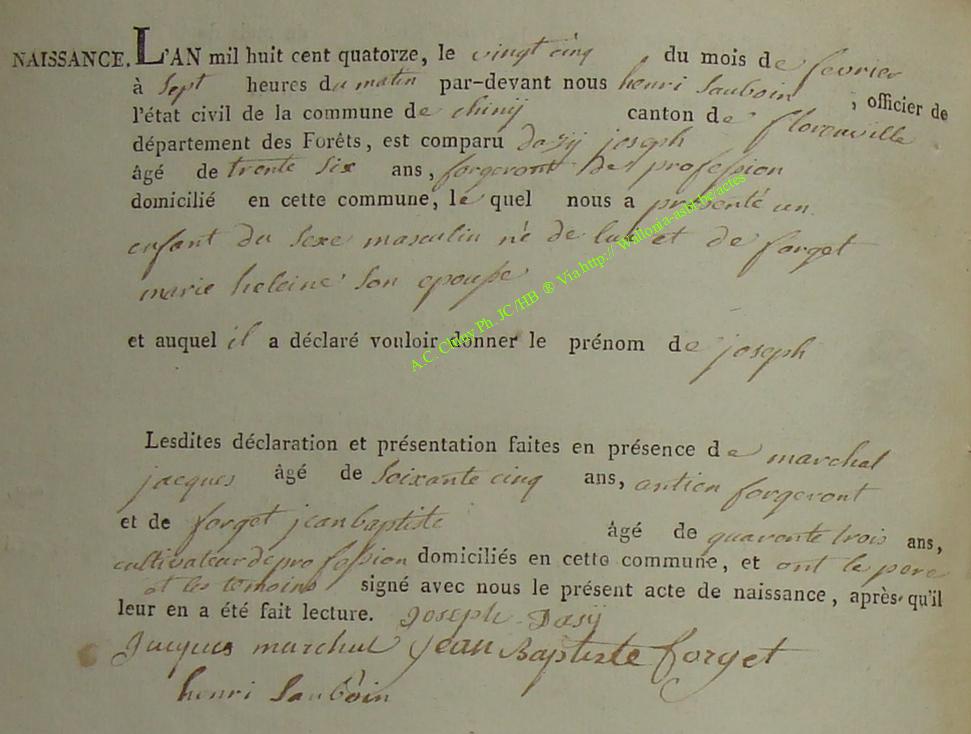 NAISSANCE. L'AN mil huit cent quatorze, le vingt cinq du mois de fevrier
à sept heures du matin par-devant nous henri Sauboin, officier de
l'état civil de la commune de chinij canton de florenville
département des Forêts, est comparu dasij joseph
âgé de trente six ans, forgeront de profession
domicilié en cette commune, le quel nous a présenté un
enfant du sexe masculin né de lui et de forget
marie heleine son epouse
et auquel il a déclaré vouloir donner le prénom de joseph
Lesdites déclaration et présentation faites en présence de marchal
jacques âgé de soixante cinq ans, antien forgeront
et de forget jean baptiste âgé de quarente trois ans,
cultivateur de profession domiciliés en cette commune, et ont le pere
et les temoins signé avec nous le présent acte de naissance, après qu'il
leur en a été fait lecture. Joseph Dasij
Jacques marchal jean Baptiste forget
henri Sauboin
A.C. Chiny Ph. JC/HB ® Via http:// Wallonia-asbl.be/actes